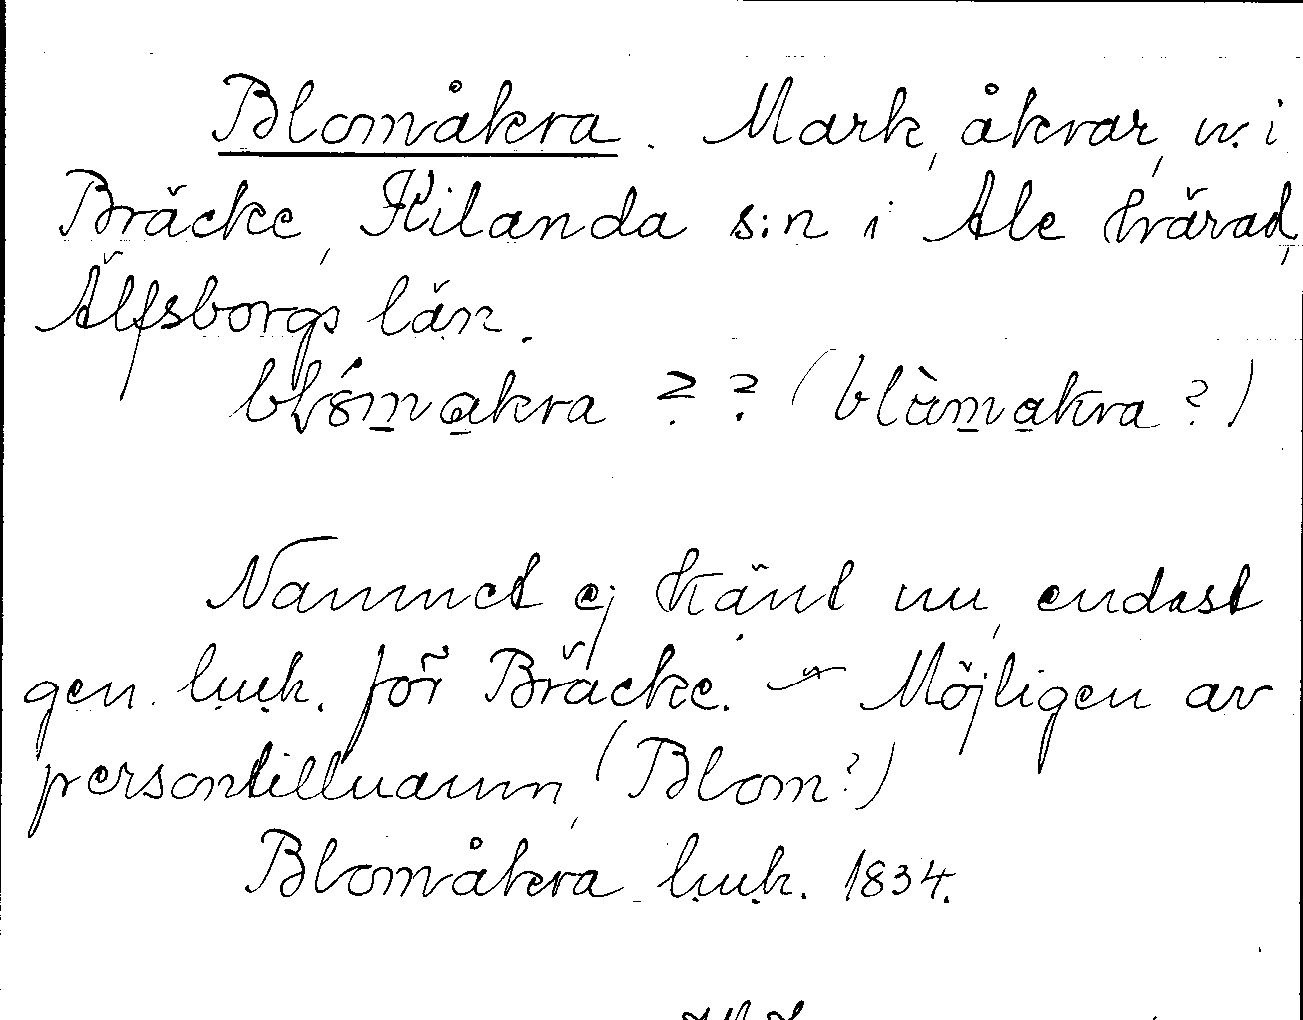 Blomåkra. Mark, åkrar, v. i
Bräcke, Kilanda s:n i Ale härad,
Älfsborgs län.
blómakra ?? (blàmakra?)
Namnet ej känt nu, endast
gen. l.u.k. för Bräcke. – Möjligen av
persontillnamn, (Blom?)
Blomåkra l.u.k. 1834.